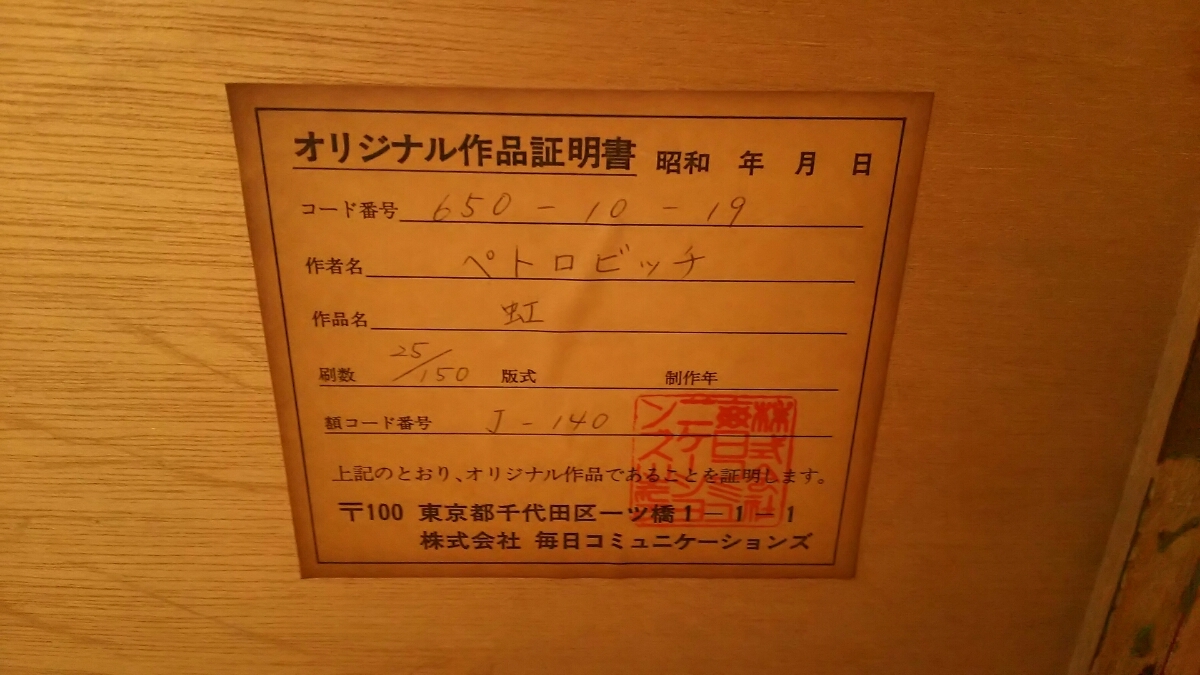 オリジナル作品証明書 昭和 年 月 日
コード番号 650-10-19
作者名 ペトロビッチ
作品名 虹
刷数 25/150 版式 制作年
額コード番号 J-140
上記のとおり、オリジナル作品であることを証明します。
〒100 東京都千代田区一ツ橋1-1-1
株式会社 毎日コミュニケーションズ